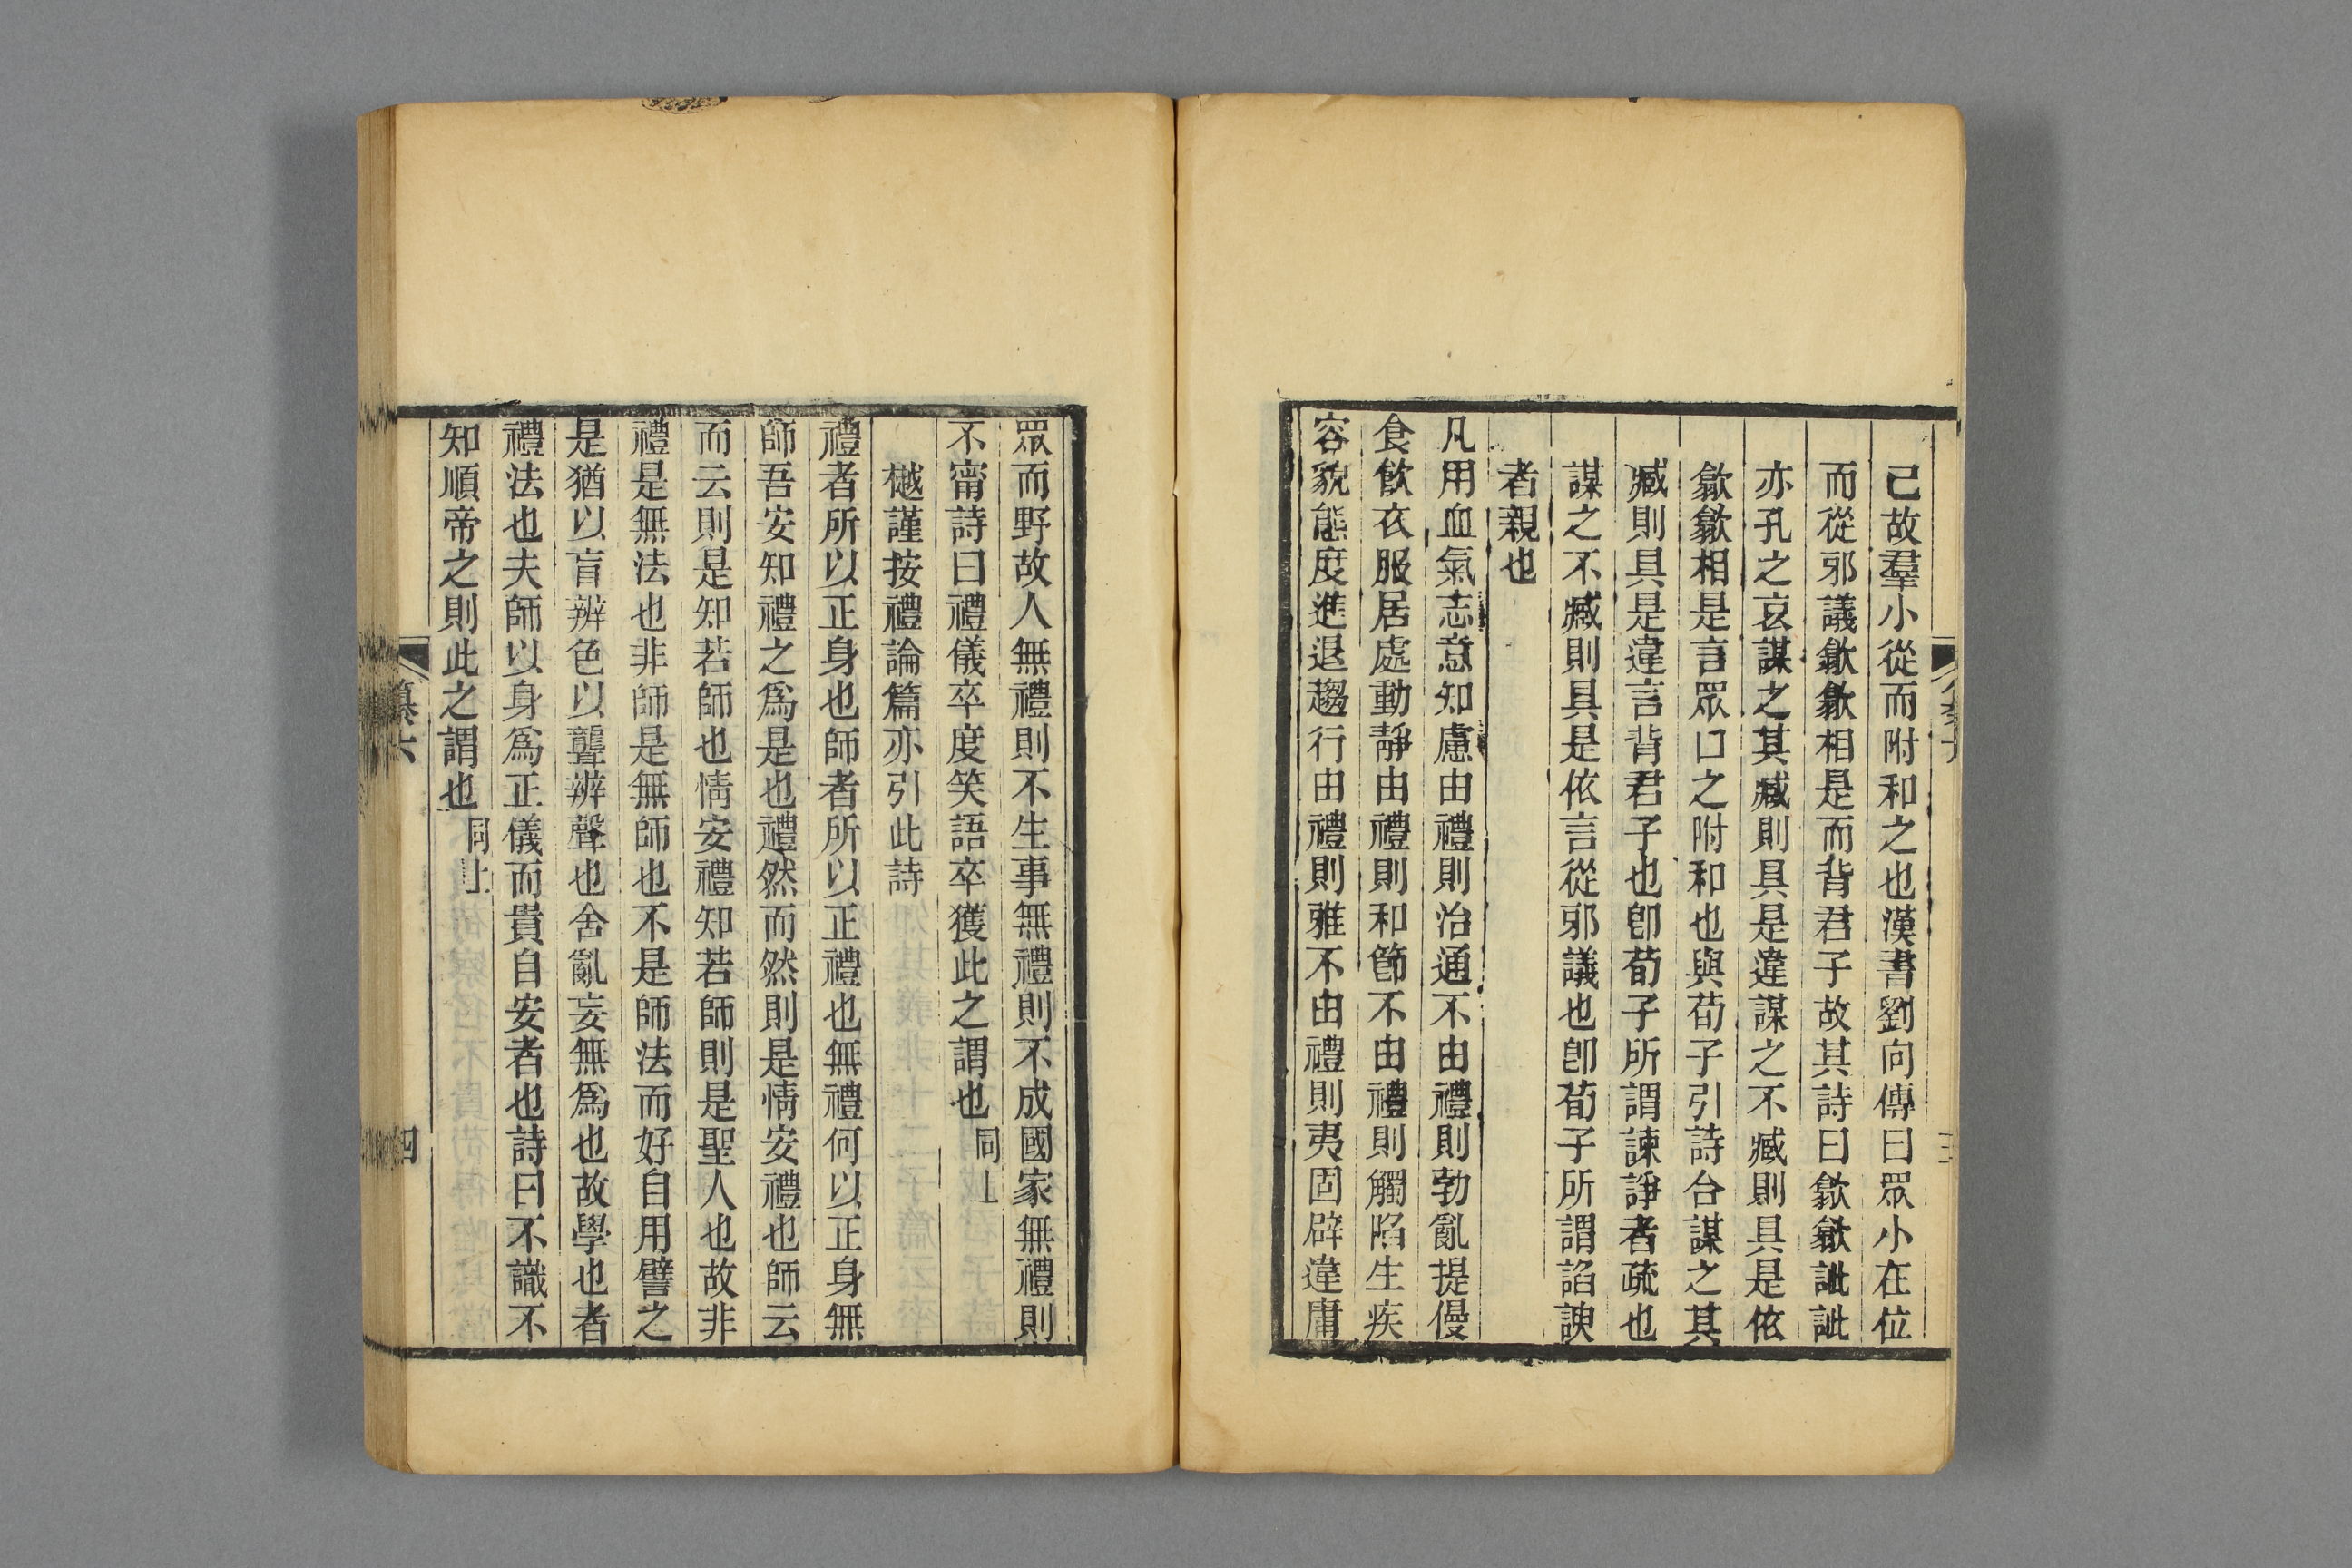 己故羣小從而附和之也漢書劉向傳曰眾小在位
而從邪議歙歙相是而背君子故其詩曰歙歙訿訿
亦孔之哀謀之其臧則具是違謀之不臧則具是依
歙歙相是言眾口之附和也與荀子引詩合謀之其
臧則具是違言背君子也卽荀子所謂諫諍者疏也
謀之不臧則具是依言從邪議也卽荀子所謂諂諛
者親也
凡用血氣志意知慮由禮則治通不由禮則勃亂提僈
食飲衣服居處動靜由禮則和節不由禮則觸陷生疾
容貌態度進退趨行由禮則雅不由禮則夷固辟違庸
眾而野故人無禮則不生事無禮則不成國家無禮則
不甯詩曰禮儀卒度笑語卒獲此之謂也同上
樾謹按禮論篇亦引此詩
禮者所以正身也師者所以正禮也無禮何以正身無
師吾安知禮之爲是也禮然而然則是情安禮也師云
而云則是知若師也情安禮知若師則是聖人也故非
禮是無法也非師是無師也不是師法而好自用譬之
是猶以盲辨色以聾辨聲也舍亂妄無爲也故學也者
禮法也夫師以身爲正儀而貴自安者也詩曰不識不
知順帝之則此之謂也同上
纂六
四